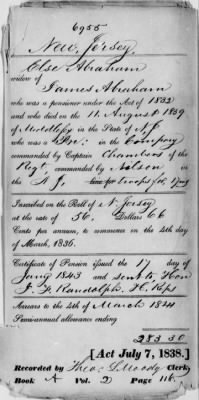 6955
New Jersey
Else Abraham
widow of
James Abraham
who was a pensioner under the Act of 1832
and who died on the 11. August 1839
of Middlesex in the State of N.J
who was a Pri: in the Company
commanded by Captain Chambers of the
Regt, commanded by Nelson in
the N J, time for
Inscribed on the Roll of N. Jersey
at the rate of 56. Dollars 66
Cents per annum, to commence on the 4th day
of March, 1836.
Certificate of Pension issued the 17 day of
Jany 1843 and sent to Hon
J. F. Randolph. H. Reps
Arrears to the 4th of March 1841
Semi-annual allowance ending
283 30
[Act July 7, 1838.]
Recorded by Theo: L Moody Clerk
Book A Vol. 2 Page 116.